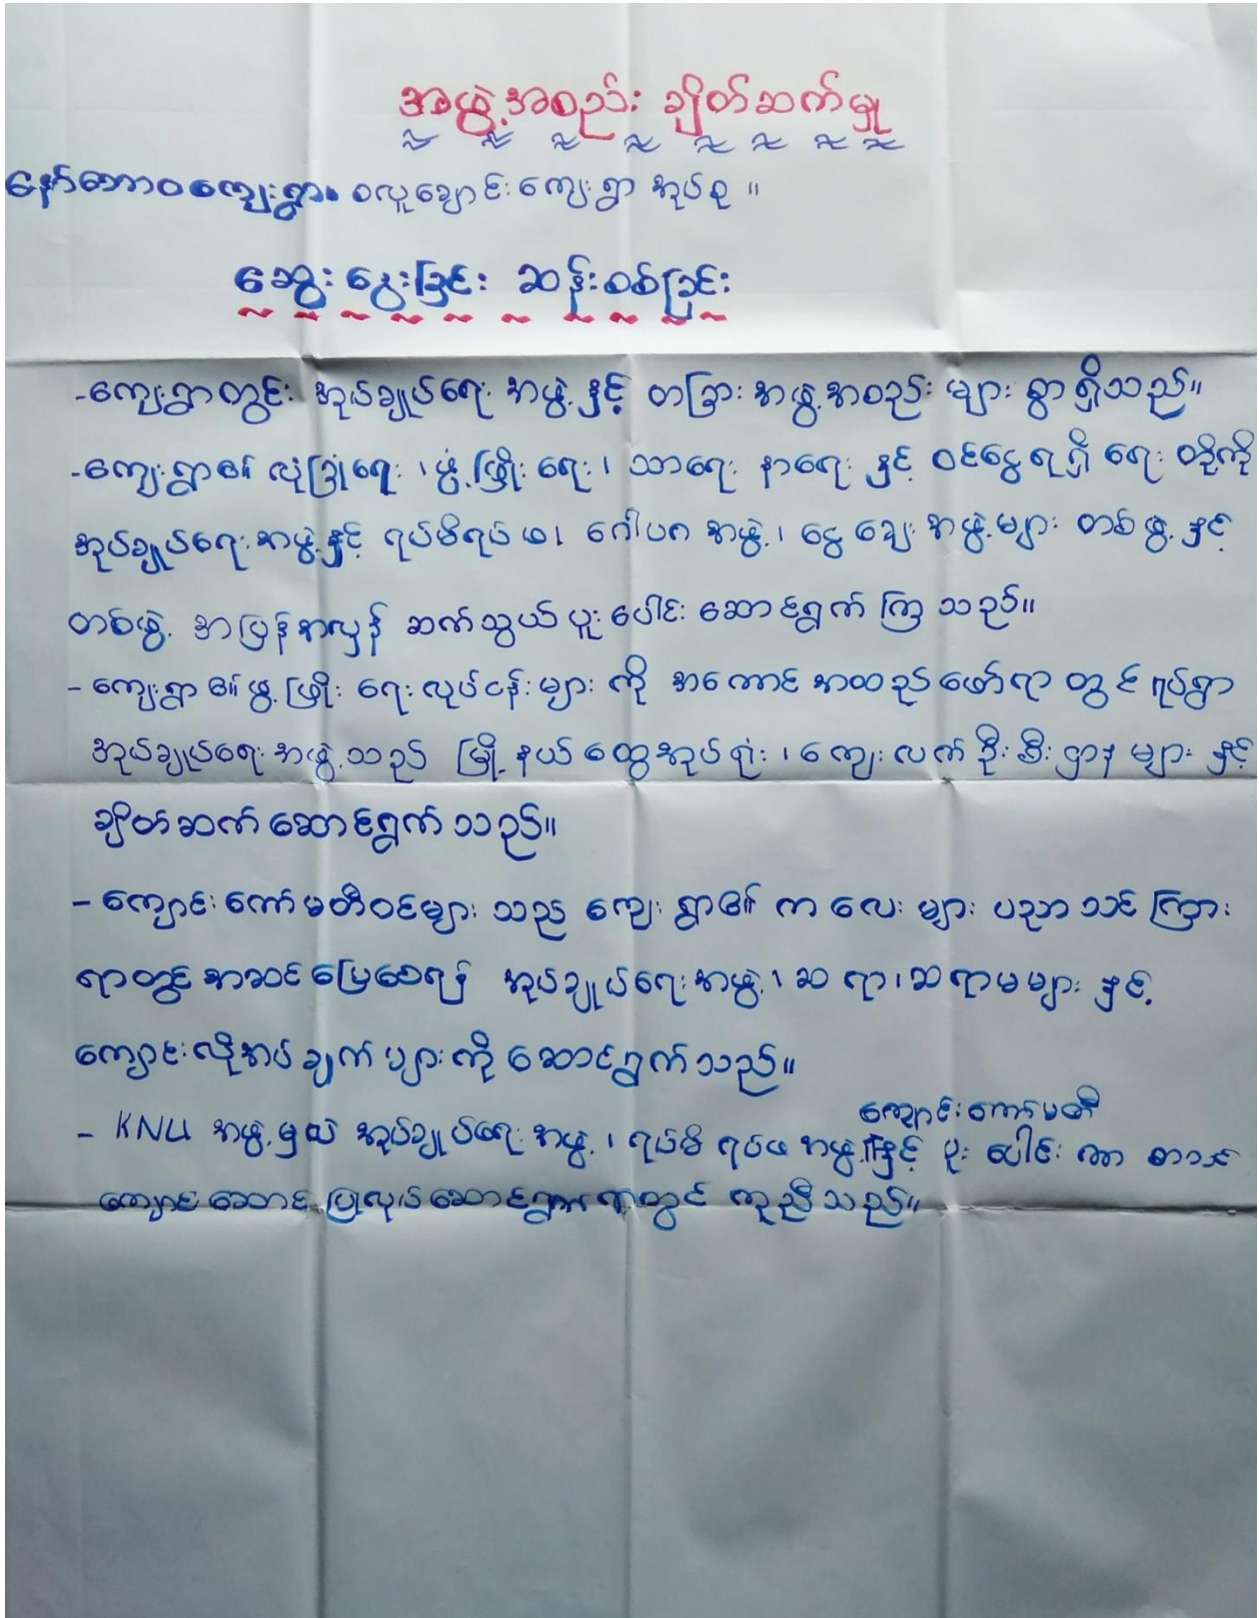 အဖွဲ့အစည်း ချိတ်ဆက်မှု
နော်တောဝကျေးရွာ၊ စလူချောင်းကျေးရွာ အုပ်စု ။
ဆွေးနွေးခြင်း ဆန်းစစ်ခြင်း
-ကျေးရွာတွင်း အုပ်ချုပ်ရေး အဖွဲ့ နှင့် တခြား အဖွဲ့အစည်း များ စွာ ရှိသည်။
-ကျေးရွာ၏ လုံခြုံရေး ၊ ဖွံ့ဖြိုး ရေး ၊ သာရေး နာရေး နှင့် ဝင်ငွေ ရရှိ ရေး တို့ကို
အုပ်ချုပ်ရေး အဖွဲ့ နှင့် ရပ်မိရပ်ဖ ၊ ဂေါပက အဖွဲ့ ၊ ငွေ ချေး အဖွဲ့များ တစ်ဖွဲ့ နှင့်
တစ်ဖွဲ့ အပြန်အလှန် ဆက်သွယ် ပူးပေါင်း ဆောင်ရွက် ကြ သည်။
- ကျေးရွာ ၏ ဖွံ့ဖြိုး ရေး လုပ်ငန်း များ ကို အကောင်အထည်ဖော်ရာ တွင် ရပ်ရွာ
အုပ်ချုပ်ရေး အဖွဲ့သည် မြို့နယ် ထွေအုပ်ရုံး ၊ ကျေးလက် ဦးစီးဌာန များ နှင့်
ချိတ်ဆက် ဆောင်ရွက် သည်။
- ကျောင်း ကော်မတီဝင်များ သည် ကျေးရွာ၏ ကလေး များ ပညာ သင်ကြား
ရာတွင် အဆင်ပြေစေရန် အုပ်ချုပ်ရေး အဖွဲ့ ၊ ဆရာ ၊ ဆရာမများ နှင့်
ကျောင်း လိုအပ် ချက် များ ကို ဆောင်ရွက် သည်။
- KNU အဖွဲ့ မှလဲ အုပ်ချုပ်ရေး အဖွဲ့ ၊ ရပ်မိ ရပ်ဖ အဖွဲ့ ၊ ကျောင်း ကော်မတီ နှင့် ပူးပေါင်း ကာ စာသင်
ကျောင်း ဆောင် ပြုလုပ် ဆောင်ရွက် ရာတွင် ကူညီ သည်။